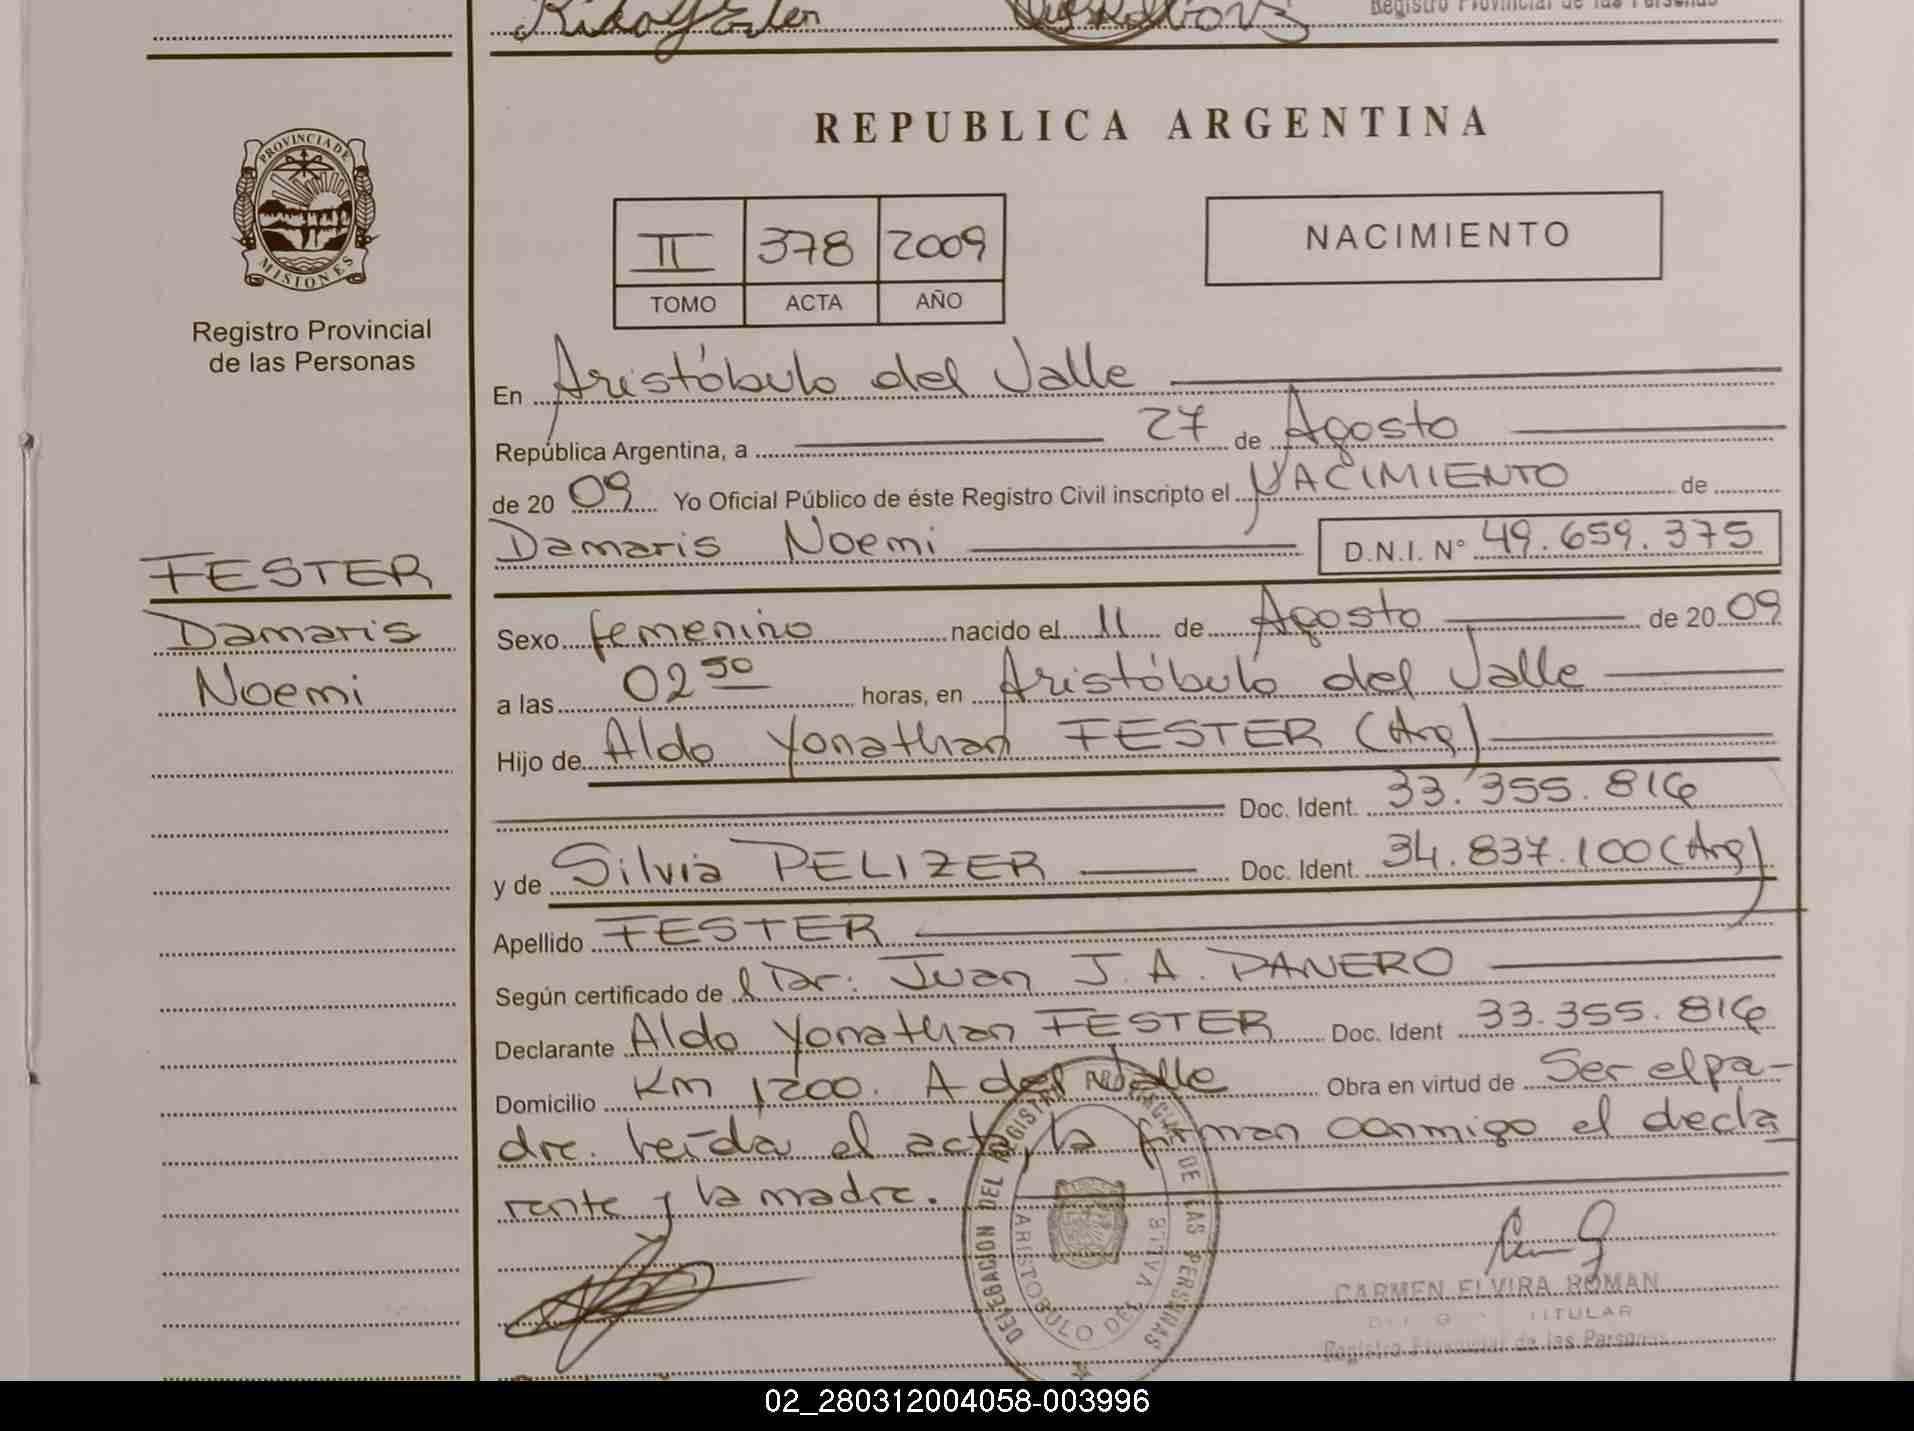 Registro Provincial de las Personas
REPUBLICA ARGENTINA
PROVINCIA DE
MISIONES
Registro Provincial
de las Personas
II 378 2009
TOMO ACTA AÑO
NACIMIENTO
En Aristóbulo del Valle
República Argentina, a 27 de Agosto
de 20 09 Yo Oficial Público de éste Registro Civil inscripto el NACIMIENTO de
Damaris Noemi D.N.I. Nº 49.659.375
FESTER
Damaris
Noemi
Sexo femenino nacido el 11 de Agosto de 20 09
a las 02 50 horas, en Aristóbulo del Valle
Hijo de Aldo Yonathan FESTER (Arg)
Doc. Ident. 33.355.816
y de Silvia PELIZER Doc. Ident. 34.837.100 (Arg)
Apellido FESTER
Según certificado de l Dr. Juan J. A. DANERO
Declarante Aldo Yonathan FESTER Doc. Ident 33.355.816
Domicilio Km 1200. A del Valle Obra en virtud de Ser el pa-
dre. Leída el acta, la firman conmigo el decla
rante y la madre.
DELEGACION DEL REGISTRO PROVINCIAL DE LAS PERSONAS
ARISTOBULO DEL VALLE
CARMEN ELVIRA ROMAN
TITULAR
Registro Provincial de las Personas
02_280312004058-003996